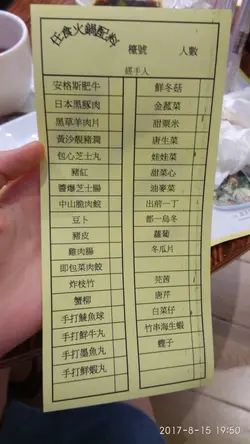 任食火鍋配料
檯號
人數
經手人
安格斯肥牛
日本黑豚肉
黑草羊肉片
黃沙靚豬潤
包心芝士丸
豬紅
醬爆芝士腸
中山脆肉鯇
豆卜
豬皮
雞肉腸
即包菜肉餃
炸枝竹
蟹柳
手打鯪魚球
手打鮮牛丸
手打墨魚丸
手打鮮蝦丸
鮮冬菇
金菰菜
甜粟米
唐生菜
娃娃菜
甜菜心
油麥菜
出前一丁
都一烏冬
蘿蔔
冬瓜片
芫茜
唐芹
白菜仔
竹串海生蝦
蟶子
2017-8-15 19:50